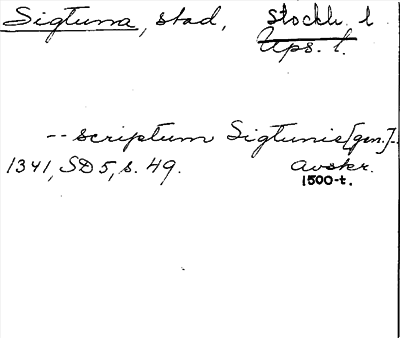 Sigtuna, stad, Stockh. l
Ups. l.
-- scriptum Sigtunie [gen.] --
1341, SD 5, s. 49. Avskr.
1500-t.